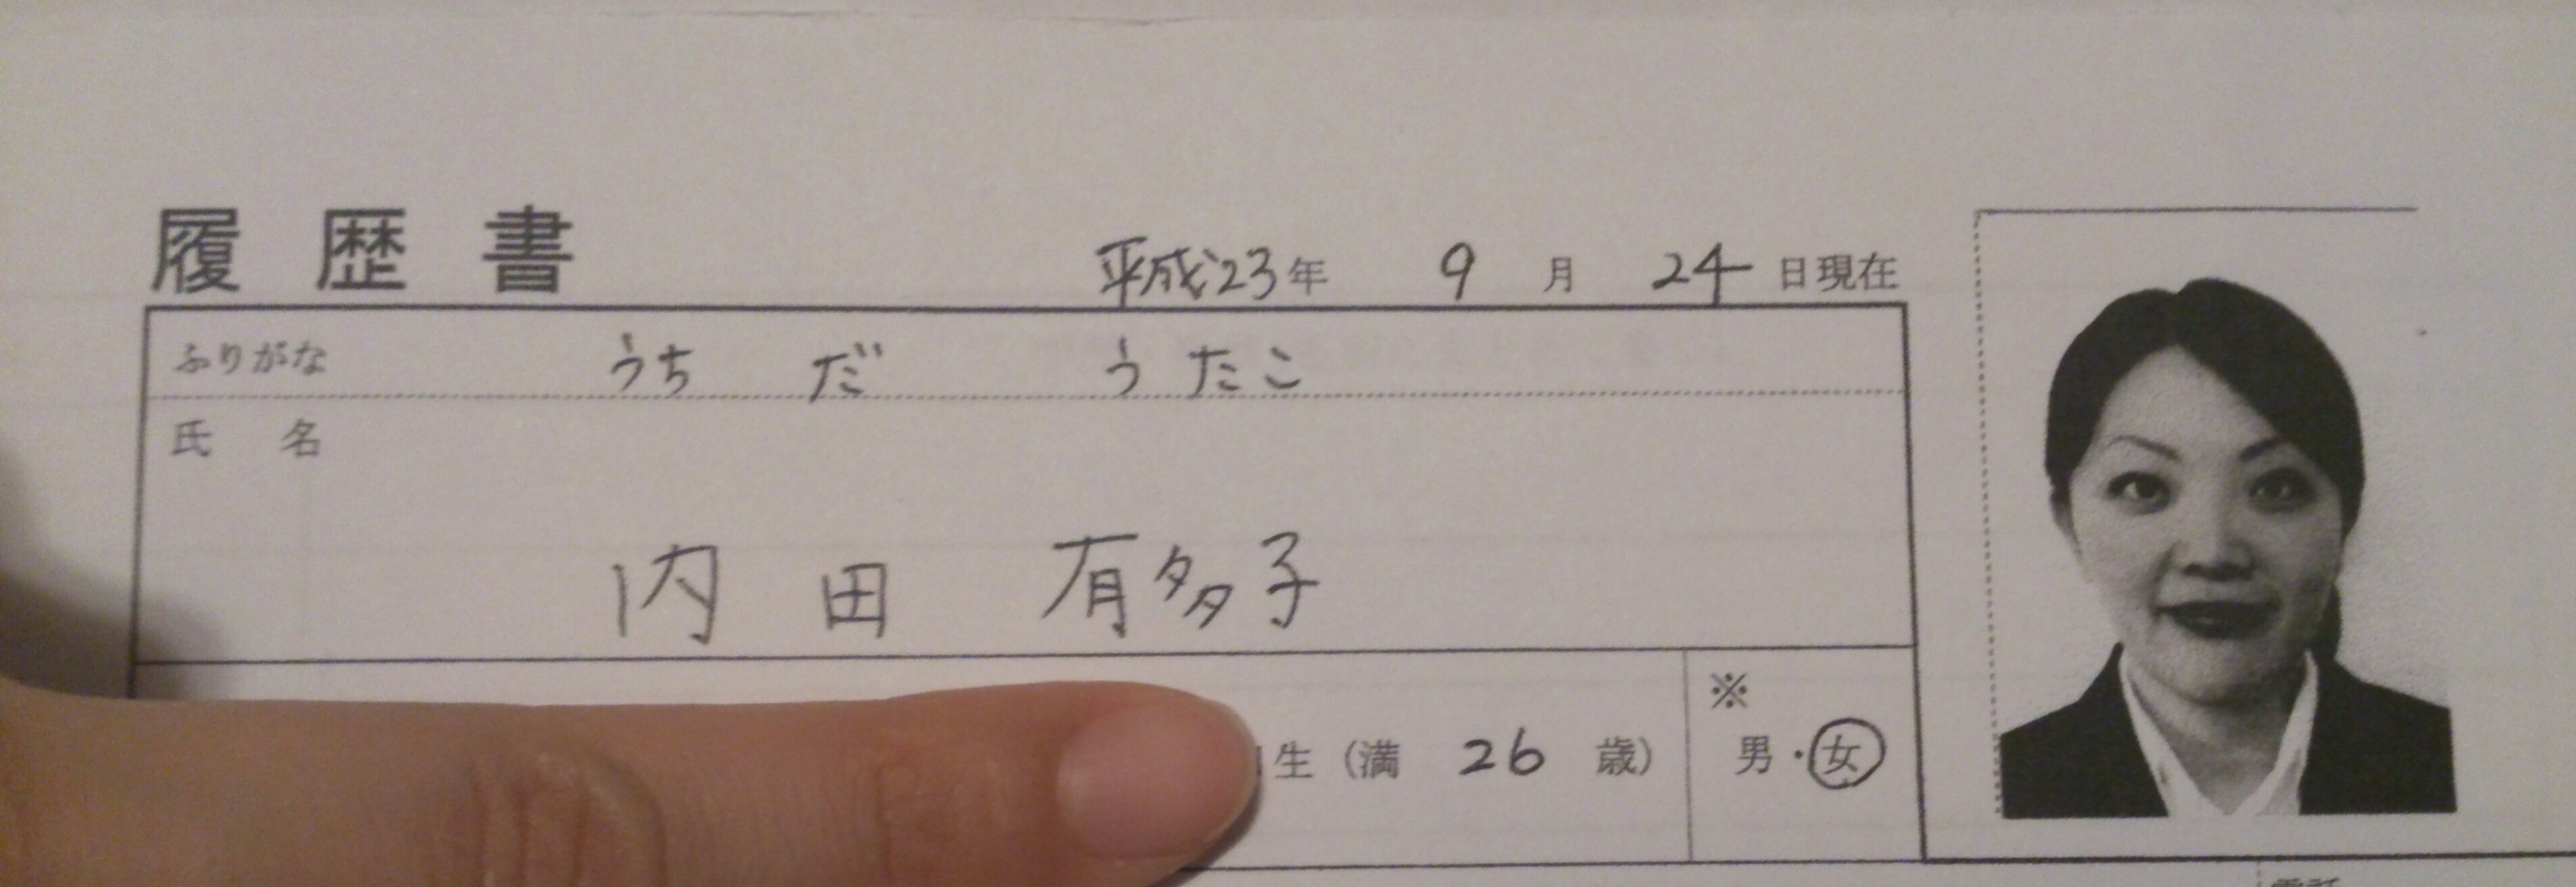 履歴書
平成23年 9月 24日現在
ふりがな うちだ うたこ
氏名
内田 有多子
生 (満 26 歳)
※
男・女